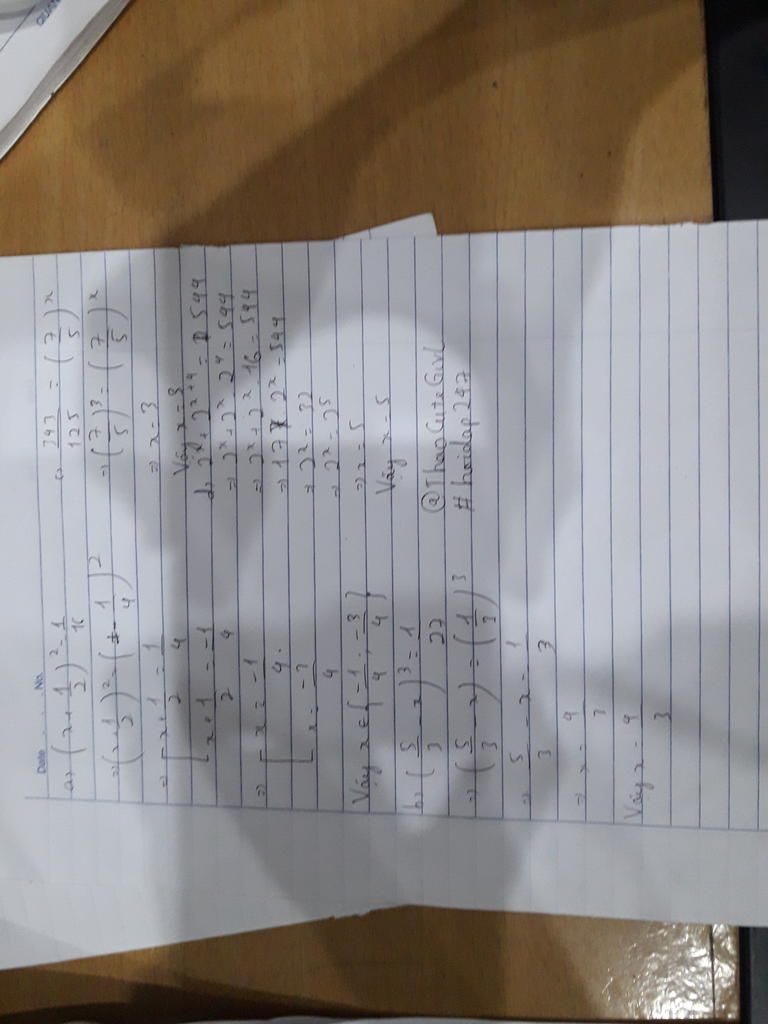 QUAN
Date No.
a, (x + 1/2)² = 1/16
⇒ (x + 1/2)² = (± 1/4)²
⇒ [ x + 1/2 = 1/4
[ x + 1/2 = -1/4
⇒ [ x = -1/4
[ x = -3/4
Vậy x ∈ { -1/4 ; -3/4 }
b, (5/3 - x)³ = 1/27
⇒ (5/3 - x) = (1/3)³
⇒ 5/3 - x = 1/3
⇒ x = 4/3
Vậy x = 4/3
c, 343/125 = (7/5)ˣ
⇒ (7/5)³ = (7/5)ˣ
⇒ x = 3
Vậy x = 3
d, 2ˣ + 2ˣ⁺⁴ = 544
⇒ 2ˣ + 2ˣ . 2⁴ = 544
⇒ 2ˣ + 2ˣ . 16 = 544
⇒ 17 . 2ˣ = 544
⇒ 2ˣ = 32
⇒ 2ˣ = 2⁵
⇒ x = 5
Vậy x = 5
@ThaoCuteGirl
#hoidap247